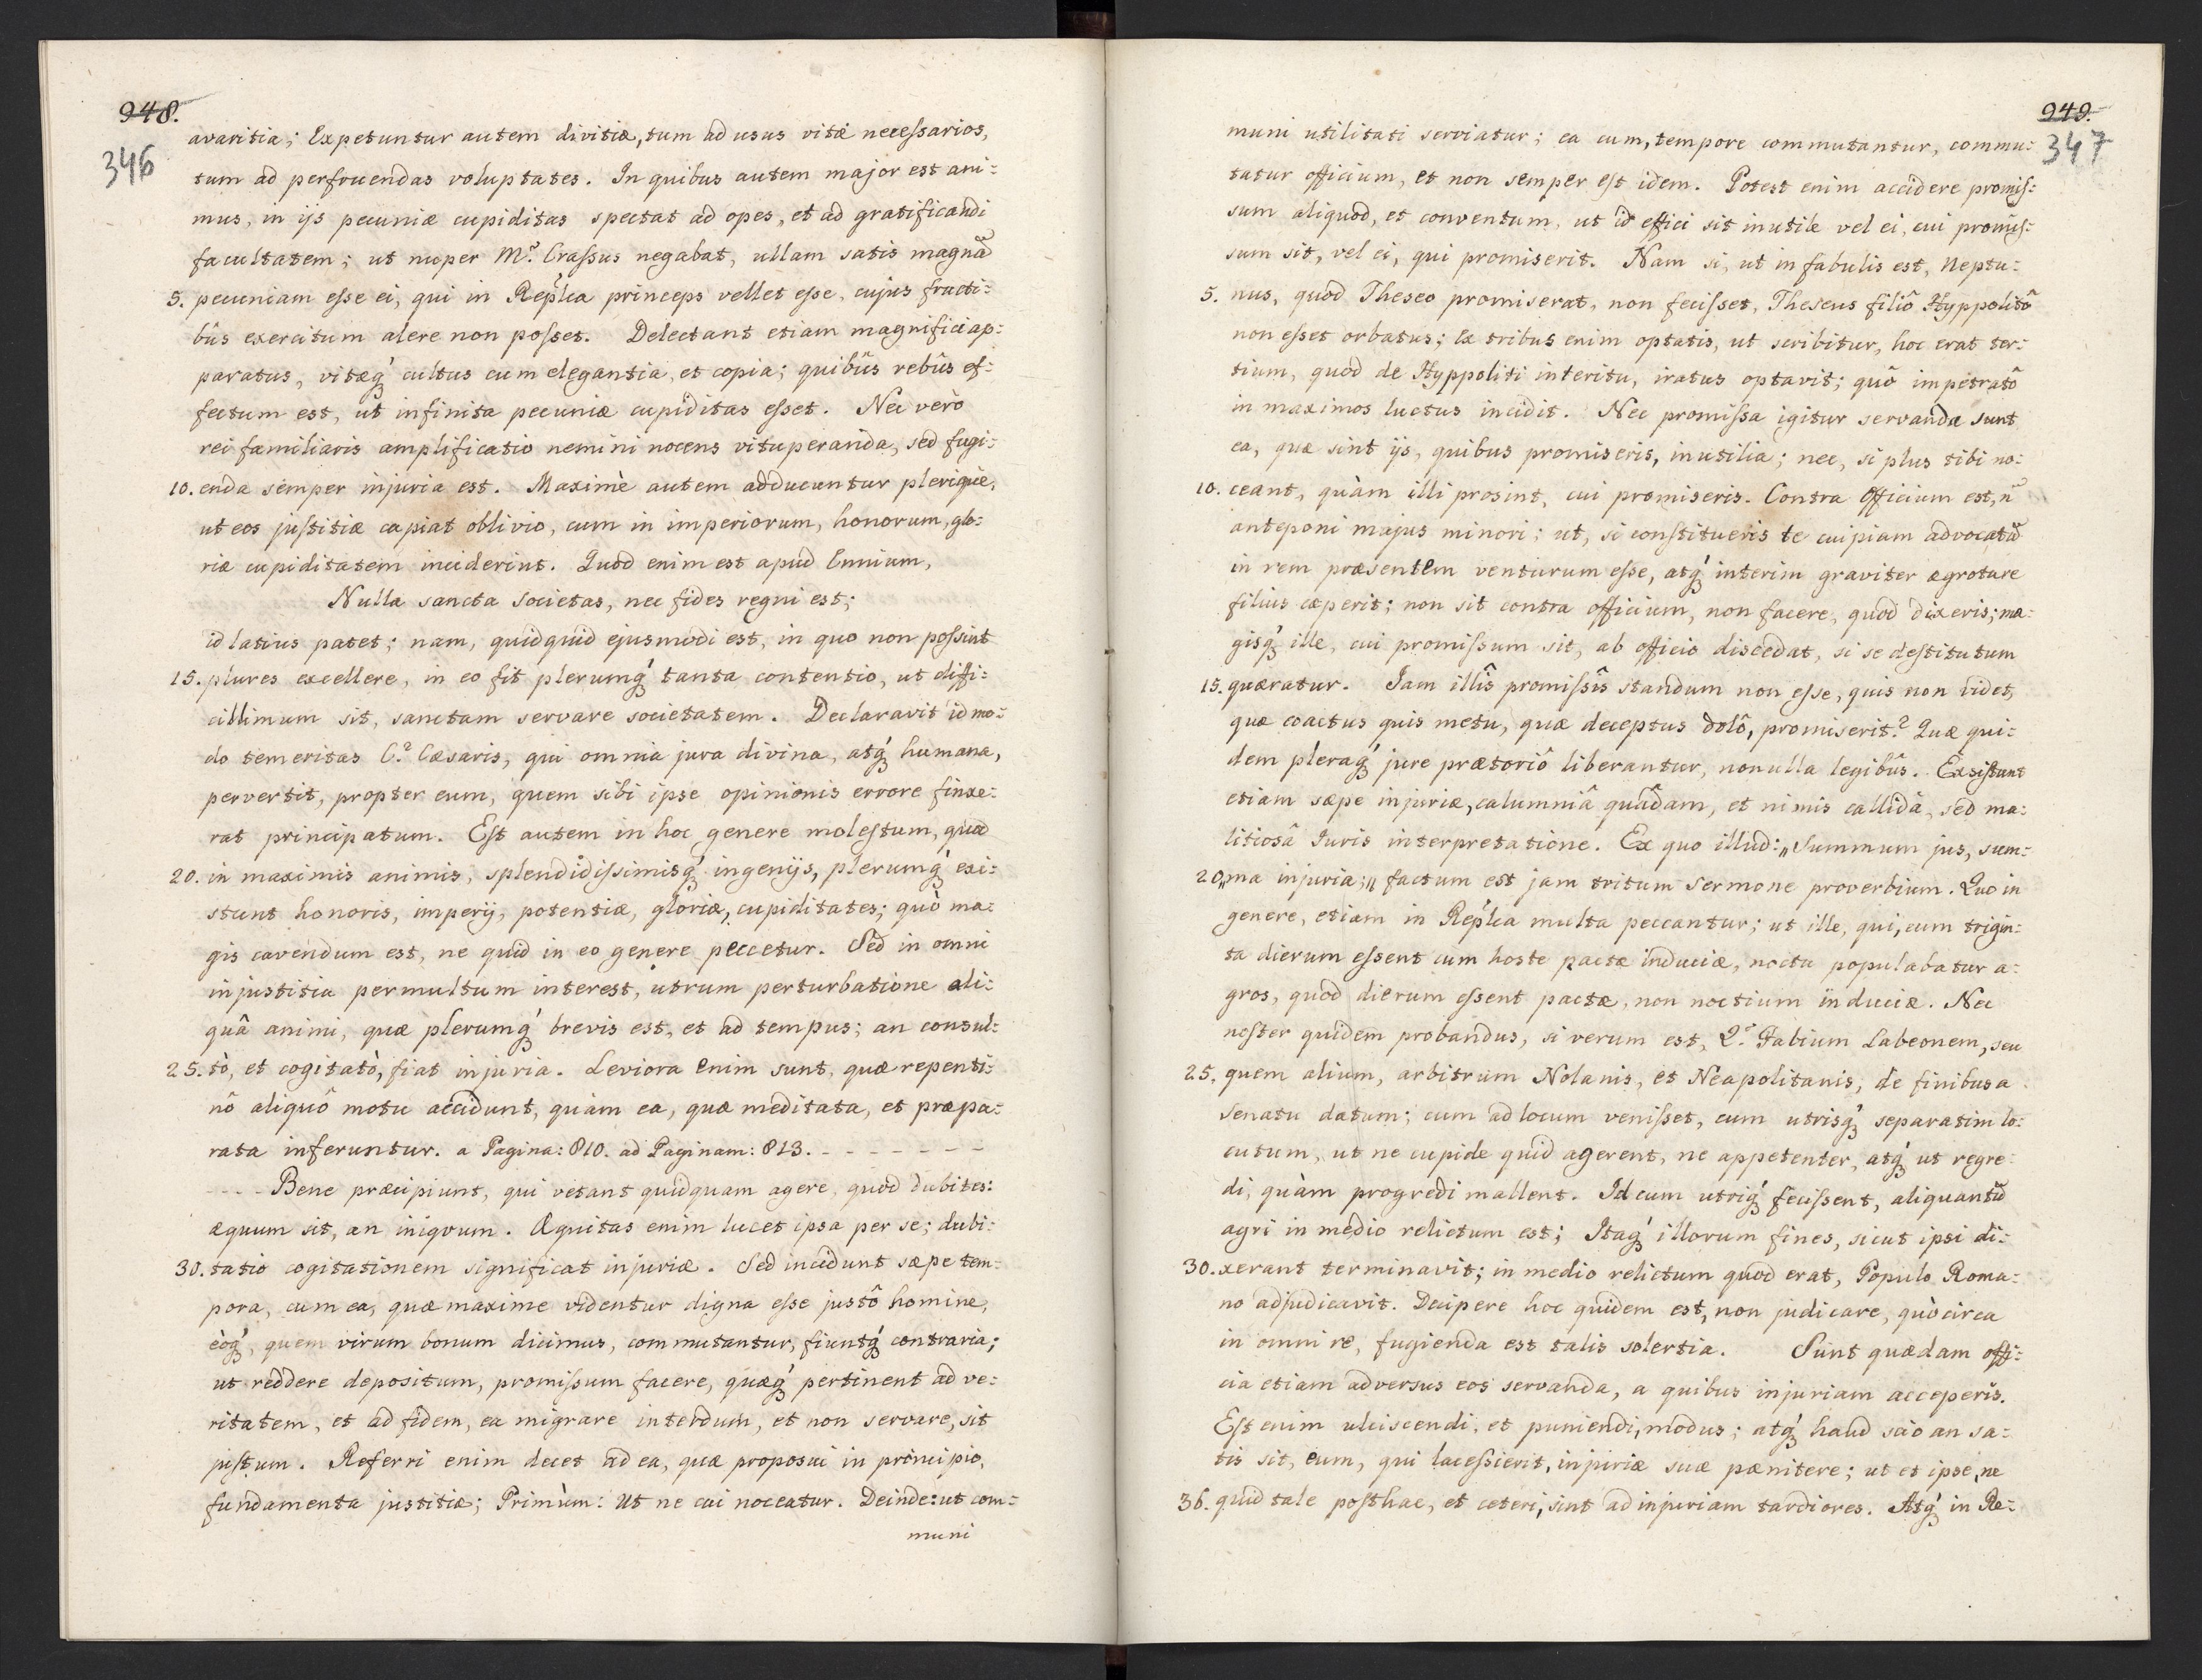 948.
346
avaritia; Expetuntur autem divitiæ, tum ad usus vitæ necessarios,
tum ad perfruendas voluptates. In quibus autem major est ani=
mus, in ijs pecuniæ cupiditas spectat ad opes, et ad gratificandi
facultatem; ut nuper M.ͬ Crassus negabat, ullam satis magnã
5. pecuniam esse ei, qui in Rep'lca princeps vellet esse, cujus fructi=
bûs exercitum alere non posset. Delectant etiam magnifici ap=
paratus, vitæq́ cultus cum elegantia, et copia; quibûs rebûs ef=
fectum est, ut infinita pecuniæ cupiditas esset. Nec verò
rei familiaris amplificatio nemini nocens vituperanda, sed fugi=
10. enda semper injuria est. Maximè autem adducuntur pleriquè,
ut eos justitiæ capiat oblivio, cum in imperiorum, honorum, glo=
riæ cupiditatem inciderint. Quod enim est apud Ennium,
Nulla sancta societas, nec fides regni est;
id latius patet; nam, quidquid ejusmodi est, in quo non possint
15. plures excellere, in eo fit plerumq́ tanta contentio, ut diffi=
cillimum sit, sanctam servare societatem. Declaravit id mo=
do temeritas C.ͬ Cæsaris, qui omnia jura divina, atq́ humana,
pervertit, propter eum, quem sibi ipse opinionis errore finxe=
rat principatum. Est autem in hoc genere molestum, quod
20. in maximis animis, splendidissimisq́ ingenijs, plerumq́ exi=
stunt honoris, imperij, potentiæ, gloriæ, cupiditates; quò ma=
gis cavendum est, ne quid in eo genere peccetur. Sed in omni
injustitia permultum interest, utrum perturbatione ali=
quâ animi, quæ plerumq́ brevis est, et ad tempus; an consul=
25. tò, et cogitatò, fiat injuria. Leviora enim sunt, quæ repenti=
nô aliquô motu accidunt, quàm ea, quæ meditata, et præpa=
rata inferuntur. a Pagina: 810. ad Paginam: 813. - - - - - - -
- - - - Bene præcipiunt, qui vetant quidquam agere, quod dubites:
æquum sit, an iniqvum. Æquitas enim lucet ipsa per se; dubi=
30. tatio cogitationem significat injuriæ. Sed incidunt sæpe tem=
pora, cum ea, quæ maxime videntur digna esse justô homine,
eòq́, quem virum bonum dicimus, commutantur, fiuntq́ contraria;
ut reddere depositum, promissum facere, quæq́ pertinent ad ve=
ritatem, et ad fidem, ea migrare interdum, et non servare, sit
justum. Referri enim decet ad ea, quæ proposui in principio,
fundamenta justitiæ; Primùm: Ut ne cui noceatur. Deinde: ut com=
muni
949.
347
muni utilitati serviatur; ea cum, tempore commutantur, commu=
tatur officium, et non semper est idem. Potest enim accidere promis=
sum aliquod, et conventum, ut id effici sit inutile vel ei, cui promis=
sum sit, vel ei, qui promiserit. Nam si, ut in fabulis est, Neptu=
5. nus, quod Theseo promiserat, non fecisset, Theseus filiô Hyppolitô
non esset orbatus; Ex tribus enim optatis, ut scribitur, hoc erat ter=
tium, quod de Hyppoliti interitu, iratus optavit; quô impetratô
in maximos luctus incidit. Nec promissa igitur servanda sunt
ea, quæ sint ijs, quibus promiseris, inutilia; nec, si plus tibi no=
10. ceant, quàm illi prosint, cui promiseris. Contra Officium est, ñ
anteponi majus minori; ut, si constitueris te cuipiam advocatũ
in rem præsentem venturum esse, atq́ interim graviter ægrotare
filius cæperit; non sit contra officium, non facere, quod dixeris; ma=
gisq́ ille, cui promissum sit, ab officio discedat, si se destitutum
15. quæratur. Jam illîs promissîs standum non esse, quis non videt,
quæ coactus quis metu, quæ deceptus dolô, promiserit? Quæ qui=
dem pleraq́ jure prætoriô liberantur, nonulla legibûs. Exsistunt
etiam sæpe injuriæ, calumniâ quâdam, et nimis callidâ, sed ma=
litiosâ Juris interpretatione. Ex quo illud: „Summum jus, sum=
20. „ma injuria;„ factum est jam tritum sermone proverbium. Quo in
genere, etiam in Rep'lca multa peccantur; ut ille, qui, cum trigin=
ta dierum essent cum hoste pactæ induciæ, noctu populabatur a=
gros, quod dierum essent pactæ, non noctium induciæ. Nec
noster quidem probandus, si verum est, Q.ͬ Fabium Labeonem, seu
25. quem alium, arbitrum Nolanis, et Neapolitanis, de finibus a
Senatu datum; cum ad locum venisset, cum utrisq́ separatim lo=
cutum, ut ne cupide quid agerent, ne appetenter, atq́ ut regre=
di, quàm progredi mallent. Id cum utriq́ fecissent, aliquantũ
agri in medio relictum est; Itaq́ illorum fines, sicut ipsi di=
30. xerant terminavit; in medio relictum quod erat, Populo Roma=
no adjudicavit. Decipere hoc quidem est, non judicare, quòcirca
in omni re, fugienda est talis solertia. Sunt quædam offi=
cia etiam adversus eos servanda, a quibus injuriam acceperis.
Est enim ulciscendi, et puniendi, modus; atq́ haud scio an sa=
tis sit, eum, qui lacessierit, injuriæ suæ pænitere; ut et ipse, ne
36. quid tale posthac, et ceteri, sint ad injuriam tardiores. Atq́ in Re=